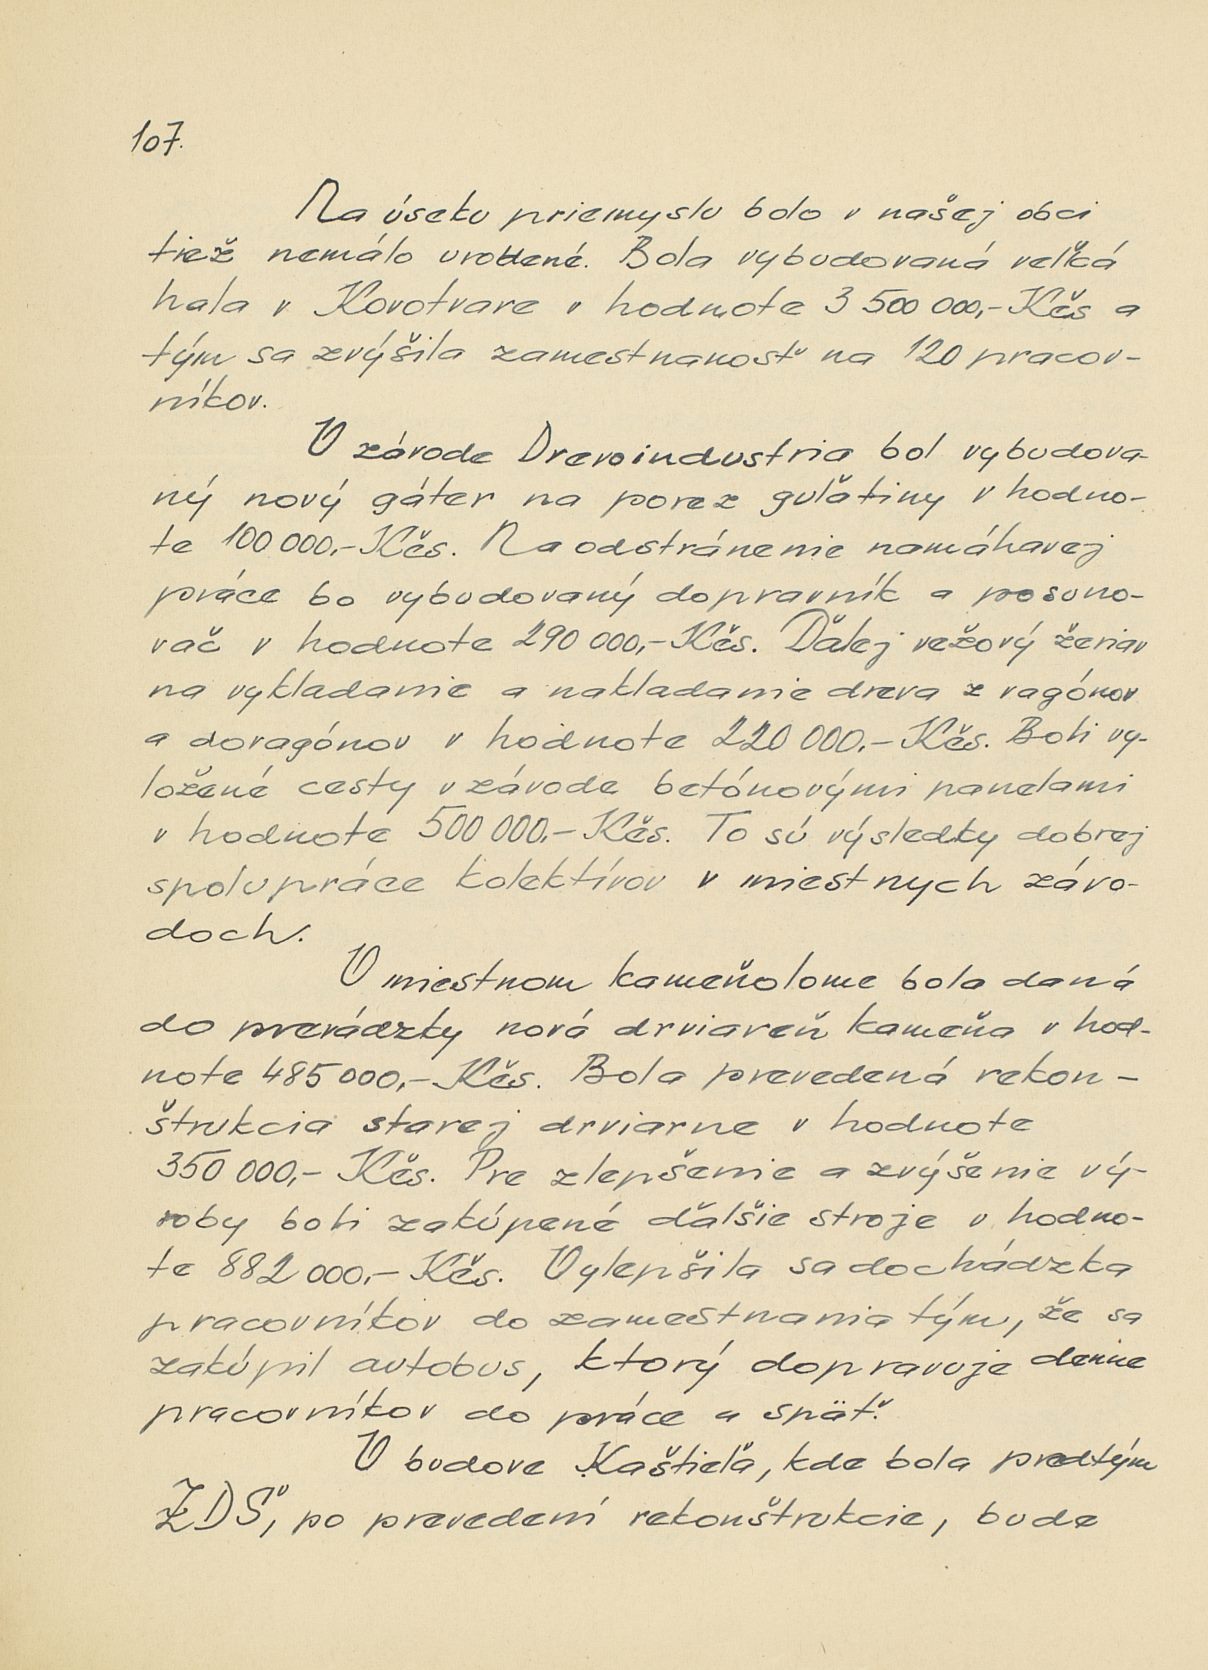 107.
Na úseku priemyslu bolo v našej obci
tiež nemálo urobené. Bola vybudovaná veľká
hala v Kovotvare v hodnote 3 500 000,- Kčs a
tým sa zvýšila zamestnanosť na 120 pracov-
níkov.
V závode Drevoindustria bol vybudova-
ný nový gáter na porez guľatiny v hodno-
te 100 000,- Kčs. Na odstránenie namáhavej
práce bo vybudovaný dopravník a posuno-
vač v hodnote 290 000,- Kčs. Ďalej vežový žeriav
na vykladanie a nakladanie dreva z vagónov
a dovagónov v hodnote 220 000,- Kčs. Boli vy-
ložené cesty v závode betónovými panelami
v hodnote 500 000,- Kčs. To sú výsledky dobrej
spolupráce kolektívov v miestnych závo-
doch.
V miestnom kameňolome bola daná
do prevádzky nová drviareň kameňa v hod-
note 485 000,- Kčs. Bola prevedená rekon-
štrukcia starej drviarne v hodnote
350 000,- Kčs. Pre zlepšenie a zvýšenie vý-
roby boli zakúpené ďalšie stroje v hodno-
te 882 000,- Kčs. Vylepšila sa dochádzka
pracovníkov do zamestnania tým, že sa
zakúpil autobus, ktorý dopravuje denne
pracovníkov do práce a späť.
V budove Kaštieľa, kde bola predtým
ZDŠ, po prevedení rekonštrukcie, bude